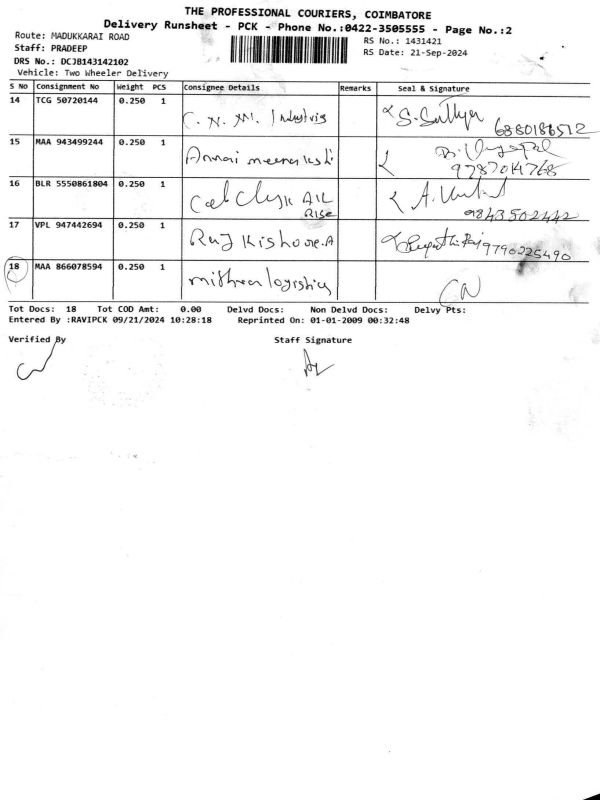 THE PROFESSIONAL COURIERS, COIMBATORE
Delivery Runsheet - PCK - Phone No.:0422-3505555 - Page No.:2
Route: MADUKKARAI ROAD
RS No.: 1431421
Staff: PRADEEP
RS Date: 21-Sep-2024
DRS No.: DCJB143142102
Vehicle: Two Wheeler Delivery
S No Consignment No Weight PCS Consignee Details Remarks Seal & Signature
14 TCG 50720144 0.250 1 Industris
15 MAA 943499244 0.250 1 Annai meenakshi 9787014768
16 BLR 5550861804 0.250 1 9843502442
17 VPL 947442694 0.250 1 Raj Kishore.A 9790225490
18 MAA 866078594 0.250 1 mithra logistics
Tot Docs: 18 Tot COD Amt: 0.00 Delvd Docs: Non Delvd Docs: Delvy Pts:
Entered By :RAVIPCK 09/21/2024 10:28:18 Reprinted On: 01-01-2009 00:32:48
Verified By Staff Signature